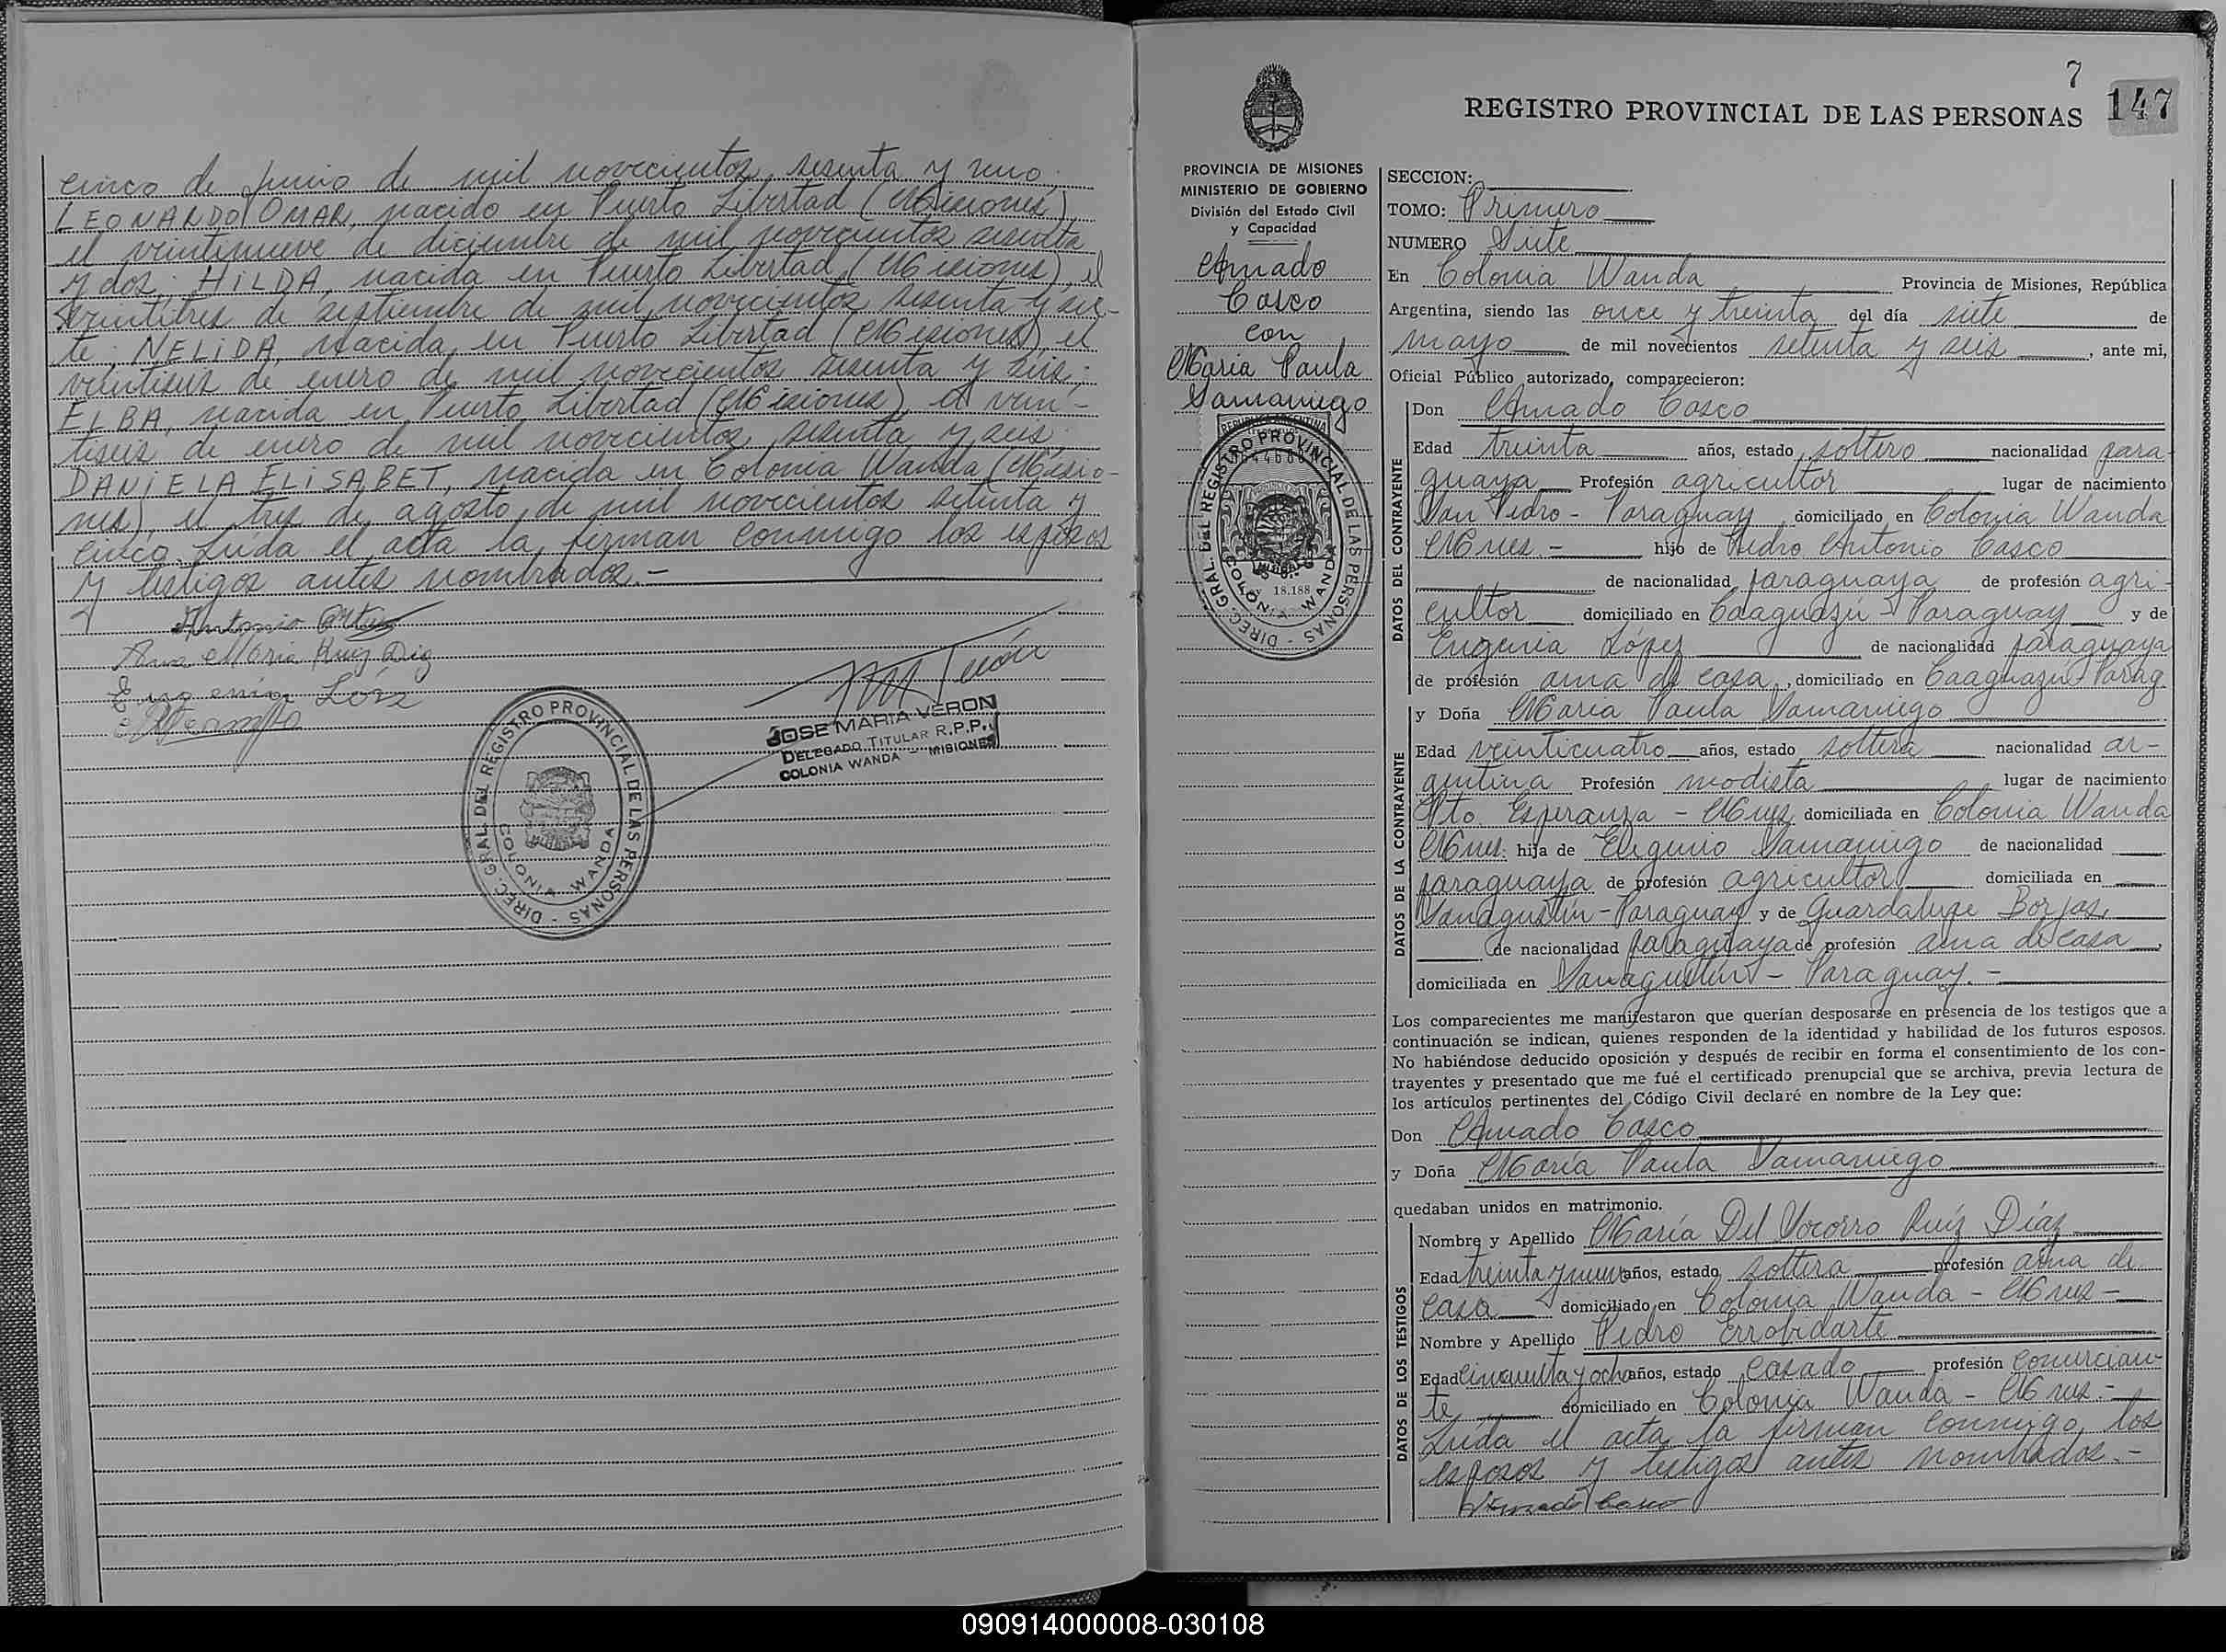 cinco de junio de mil novecientos sesenta y uno;
LEONARDO OMAR, nacido en Puerto Libertad (Misiones),
el veintinueve de diciembre de mil novecientos sesenta
y dos; HILDA, nacida en Puerto Libertad (Misiones), el
veintitres de septiembre de mil novecientos sesenta y sie-
te; NELIDA, nacida en Puerto Libertad (Misiones) el
veintiseis de enero de mil novecientos sesenta y seis;
ELBA, nacida en Puerto Libertad (Misiones) el vein-
tiseis de enero de mil novecientos sesenta y seis;
DANIELA ELISABET, nacida en Colonia Wanda (Misio-
nes) el tres de agosto de mil novecientos setenta y
cinco. Leída el acta la firman conmigo los esposos
y testigos antes nombrados.-
Antonio
Ana Maria Ruiz Diaz
JOSE MARIA VERON
DELEGADO TITULAR R.P.P.
COLONIA WANDA - MISIONES
DIREC. GRAL. DEL REGISTRO PROVINCIAL DE LAS PERSONAS
COLONIA WANDA
7
REGISTRO PROVINCIAL DE LAS PERSONAS 147
PROVINCIA DE MISIONES
MINISTERIO DE GOBIERNO
División del Estado Civil
y Capacidad
Amado
Casco
con
Maria Paula
Samaniego
REPUBLICA ARGENTINA
DIREC. GRAL. DEL REGISTRO PROVINCIAL DE LAS PERSONAS
COLONIA WANDA
18.188
SECCION:
TOMO: Primero
NUMERO Siete
En Colonia Wanda Provincia de Misiones, República
Argentina, siendo las once y treinta del día siete de
mayo de mil novecientos setenta y seis, ante mi,
Oficial Público autorizado, comparecieron:
DATOS DEL CONTRAYENTE
Don Amado Casco
Edad treinta años, estado soltero nacionalidad para-
guaya Profesión agricultor lugar de nacimiento
San Pedro - Paraguay domiciliado en Colonia Wanda
Mnes - hijo de Pedro Antonio Casco
de nacionalidad paraguaya de profesión agri-
cultor domiciliado en Caaguazú - Paraguay y de
Eugenia López de nacionalidad paraguaya
de profesión ama de casa, domiciliado en Caaguazú - Parag.
DATOS DE LA CONTRAYENTE
y Doña Maria Paula Samaniego
Edad veinticuatro años, estado soltera nacionalidad ar-
gentina Profesión modista lugar de nacimiento
Pto. Esperanza - Mnes domiciliada en Colonia Wanda
Mnes. hija de Eligunio Samaniego de nacionalidad
paraguaya de profesión agricultor domiciliada en
Sanagustín - Paraguay y de Guardalupe Borjas,
de nacionalidad paraguaya de profesión ama de casa,
domiciliada en Sanagustín - Paraguay.-
Los comparecientes me manifestaron que querían desposarse en presencia de los testigos que a
continuación se indican, quienes responden de la identidad y habilidad de los futuros esposos.
No habiéndose deducido oposición y después de recibir en forma el consentimiento de los con-
trayentes y presentado que me fué el certificado prenupcial que se archiva, previa lectura de
los artículos pertinentes del Código Civil declaré en nombre de la Ley que:
Don Amado Casco
y Doña María Paula Samaniego
quedaban unidos en matrimonio.
DATOS DE LOS TESTIGOS
Nombre y Apellido María Del Socorro Ruíz Díaz
Edad treinta y nueve años, estado soltera profesión ama de
casa domiciliado en Colonia Wanda - Mnes -
Nombre y Apellido Pedro Errobidarte
Edad cincuenta y ocho años, estado casado profesión comercian-
te domiciliado en Colonia Wanda - Mnes.-
Leída el acta la firman conmigo los
esposos y testigos antes nombrados.-
Amado Casco
090914000008-030108